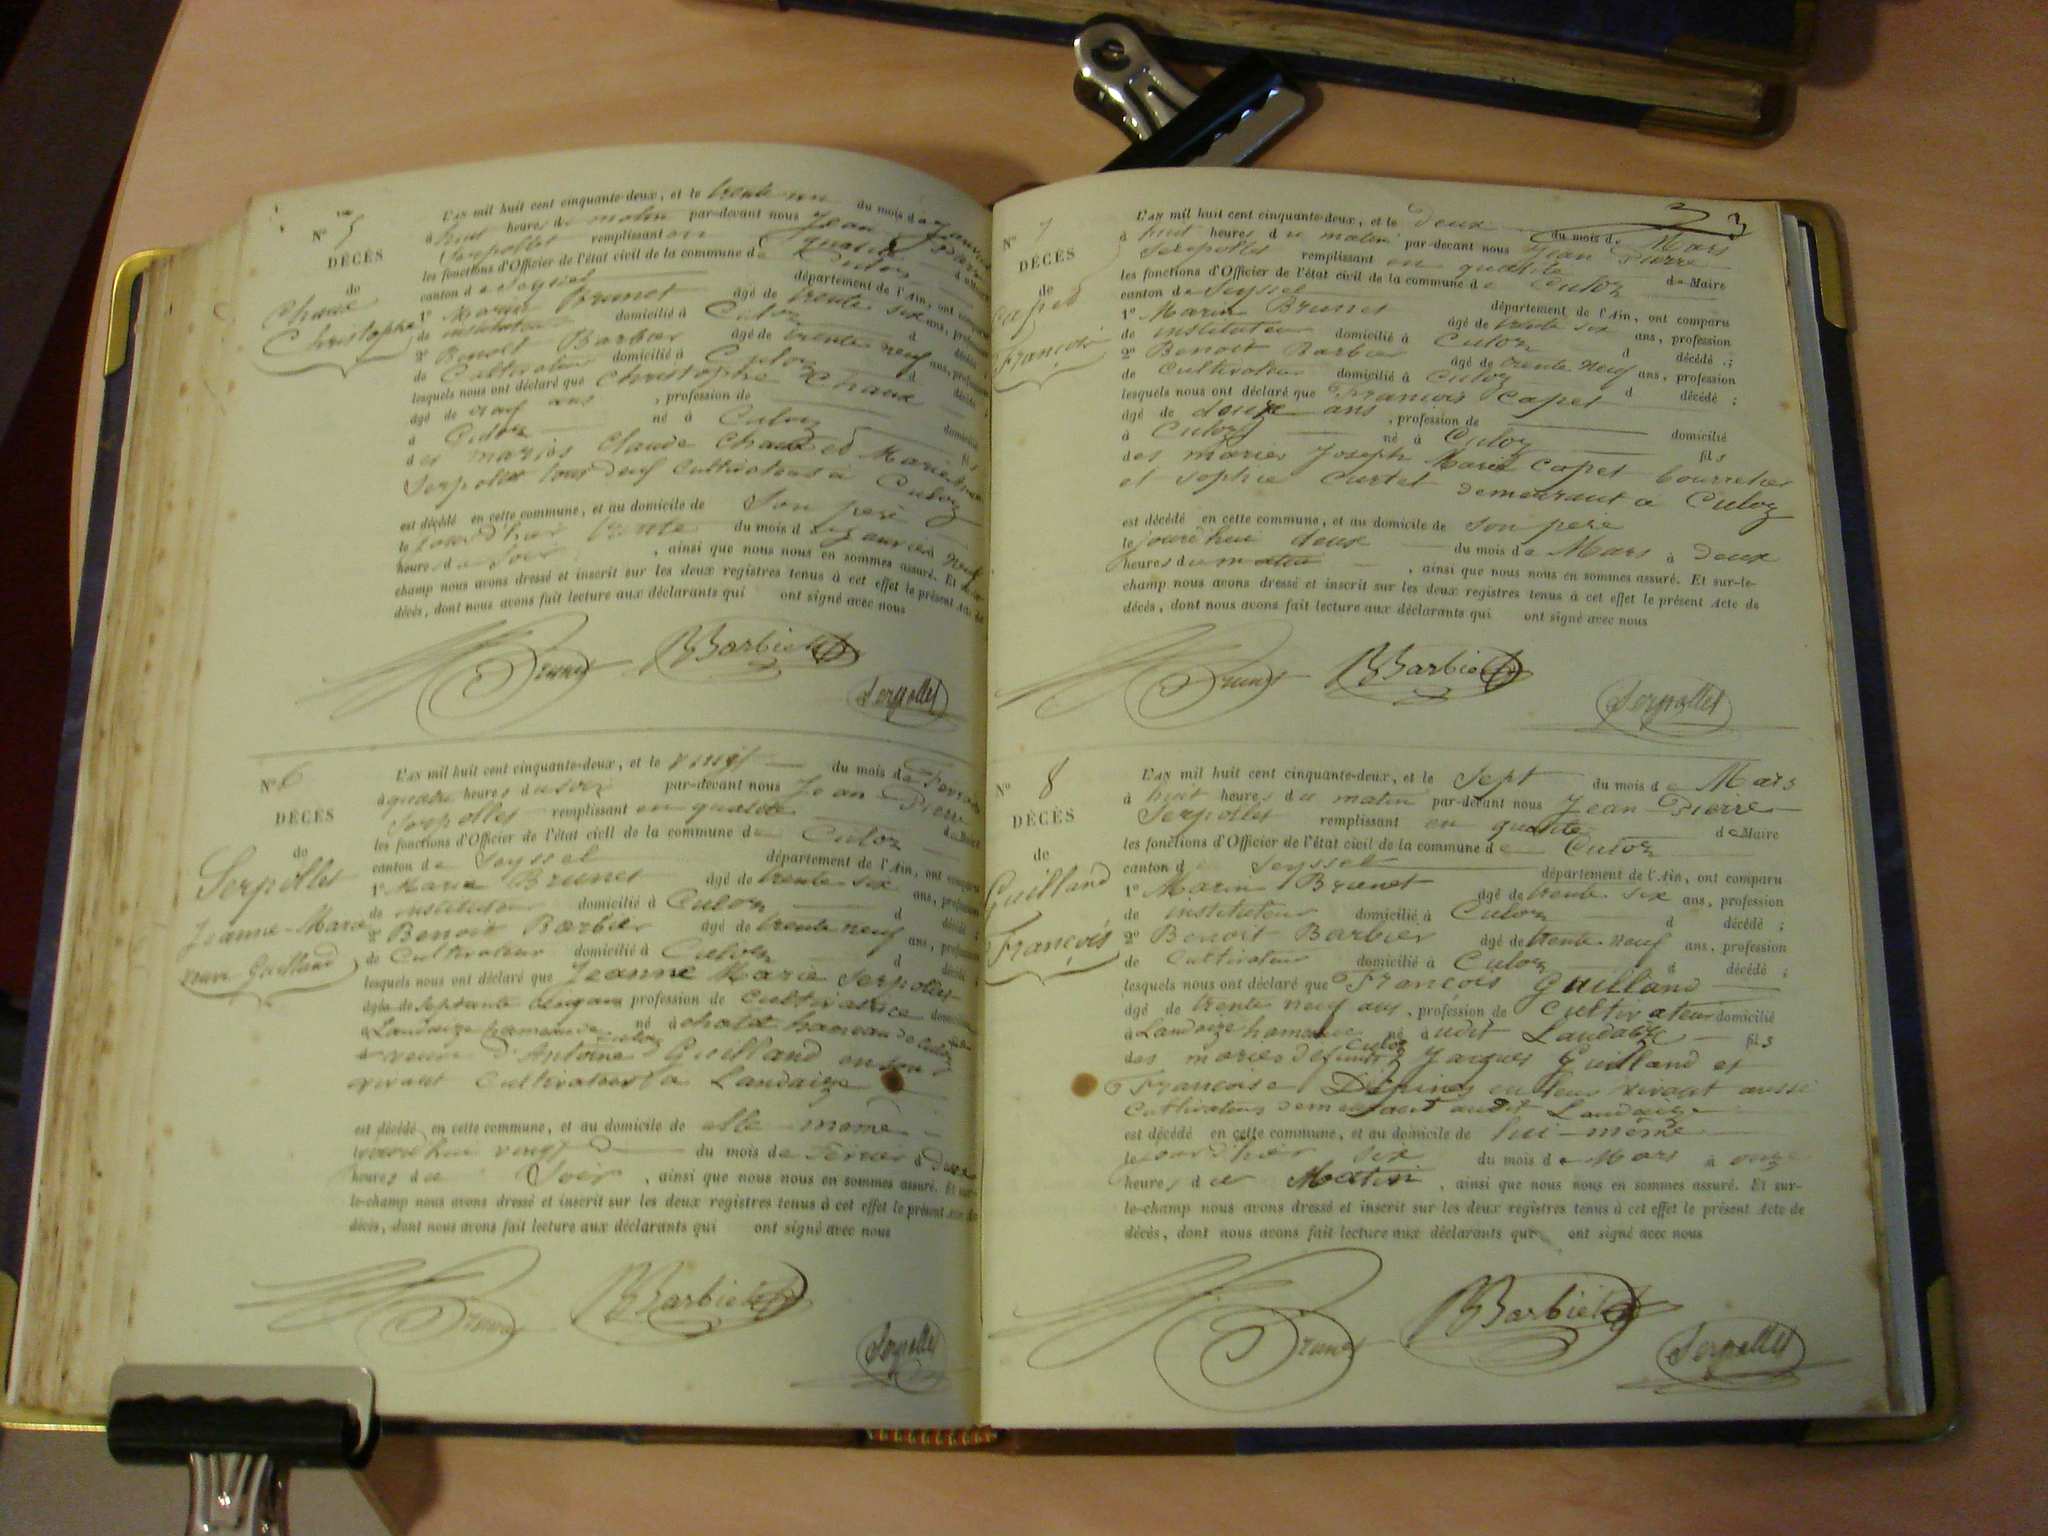 N° 5
DÉCÈS
de
Chaux
Christophe
L'an mil huit cent cinquante-deux, et le trente un du mois de Janvier
à huit heures du matin par-devant nous Jean Pierre
Serpollet remplissant en qualité de Maire
les fonctions d'Officier de l'état civil de la commune de Culoz
canton de Seyssel département de l'Ain, ont comparu
1° Marin Brunet âgé de trente six ans, profession
de instituteur domicilié à Culoz d décédé ;
2° Benoit Barbier âgé de trente neuf ans, profession
de Cultivateur domicilié à Culoz d décédé ;
lesquels nous ont déclaré que Christophe Chaux
âgé de neuf ans , profession de domicilié
à Culoz né à Culoz fils
des mariés Claude Chaux et Marie
Serpollet tous deux Cultivateurs à Culoz
est décédé en cette commune, et au domicile de Son père
le jourd'hier trente du mois de Janvier à neuf
heures du Soir , ainsi que nous nous en sommes assuré. Et
champ nous avons dressé et inscrit sur les deux registres tenus à cet effet le présent Acte de
décès, dont nous avons fait lecture aux déclarants qui ont signé avec nous
Brunet BBarbier
Serpollet
N° 6
DÉCÈS
de
Serpollet
Jeanne-Marie
veuve Guilland
L'an mil huit cent cinquante-deux, et le vingt du mois de Fevrier
à quatre heures du soir par-devant nous Jean Pierre
Serpollet remplissant en qualité de Maire
les fonctions d'Officier de l'état civil de la commune de Culoz
canton de Seyssel département de l'Ain, ont comparu
1° Marin Brunet âgé de trente six ans, profession
de instituteur domicilié à Culoz d décédé ;
2° Benoit Barbier âgé de trente neuf ans, profession
de Cultivateur domicilié à Culoz d décédé ;
lesquels nous ont déclaré que Jeanne Marie Serpollet
âgée de septante cinq ans profession de Cultivatrice domiciliée
à Landaize hameau de Culoz né à chatel hameau de Culoz
veuve d'Antoine Guilland en son
vivant Cultivateur à Landaize
est décédé en cette commune, et au domicile de elle-même
le jourd'hui vingt du mois de Fevrier à deux
heures du Soir , ainsi que nous nous en sommes assuré. Et sur-
le-champ nous avons dressé et inscrit sur les deux registres tenus à cet effet le présent Acte de
décès, dont nous avons fait lecture aux déclarants qui ont signé avec nous
Brunet BBarbier
Serpollet
3
N° 7
DÉCÈS
de
Capet
François
L'an mil huit cent cinquante-deux, et le deux du mois de Mars
à huit heures du matin par-devant nous Jean Pierre
Serpollet remplissant en qualité de Maire
les fonctions d'Officier de l'état civil de la commune de Culoz
canton de Seyssel département de l'Ain, ont comparu
1° Marin Brunet âgé de trente six ans, profession
de instituteur domicilié à Culoz d décédé ;
2° Benoit Barbier âgé de trente neuf ans, profession
de Cultivateur domicilié à Culoz d décédé ;
lesquels nous ont déclaré que François Capet
âgé de deux ans , profession de domicilié
à Culoz né à Culoz fils
des mariés Joseph Marie Capet bourrelier
et Sophie Curtet demeurant à Culoz
est décédé en cette commune, et au domicile de son père
le jourd'hui deux du mois de Mars à deux
heures du matin , ainsi que nous nous en sommes assuré. Et sur-le-
champ nous avons dressé et inscrit sur les deux registres tenus à cet effet le présent Acte de
décès, dont nous avons fait lecture aux déclarants qui ont signé avec nous
Brunet BBarbier
Serpollet
N° 8
DÉCÈS
de
Guilland
François
L'an mil huit cent cinquante-deux, et le Sept du mois de Mars
à huit heures du matin par-devant nous Jean Pierre
Serpollet remplissant en qualité de Maire
les fonctions d'Officier de l'état civil de la commune de Culoz
canton de Seyssel département de l'Ain, ont comparu
1° Marin Brunet âgé de trente six ans, profession
de instituteur domicilié à Culoz d décédé ;
2° Benoit Barbier âgé de trente neuf ans, profession
de Cultivateur domicilié à Culoz d décédé ;
lesquels nous ont déclaré que François Guilland
âgé de trente neuf ans, profession de Cultivateur domicilié
à Landaize hameau de Culoz né audit Landaize fils
des mariés défunts Jacques Guilland et
Françoise en leur vivant aussi
Cultivateurs demeurant audit Landaize
est décédé en cette commune, et au domicile de lui-même
le jourd'hier six du mois de Mars à onze
heures du Matin , ainsi que nous nous en sommes assuré. Et sur-
le-champ nous avons dressé et inscrit sur les deux registres tenus à cet effet le présent Acte de
décès, dont nous avons fait lecture aux déclarants qui ont signé avec nous
Brunet BBarbier
Serpollet